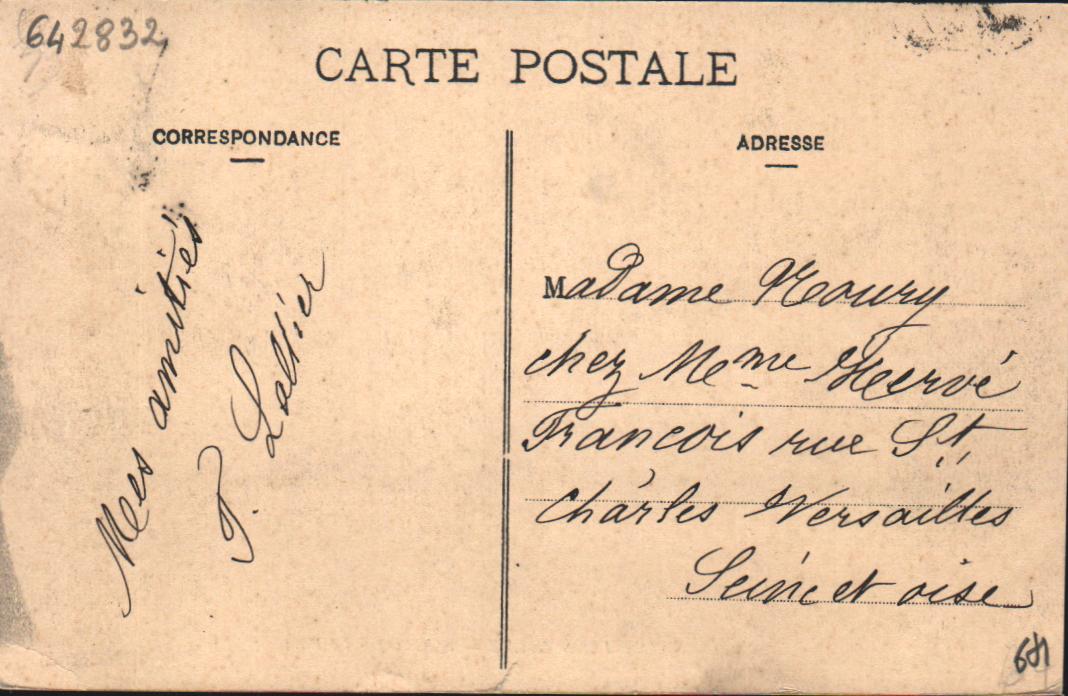 642832
CARTE POSTALE
CORRESPONDANCE
ADRESSE
Mes amitiés
F. Lallier
Madame Noury
chez Meme Hervé
Francois rue St
Charles Versailles
Seine et oise